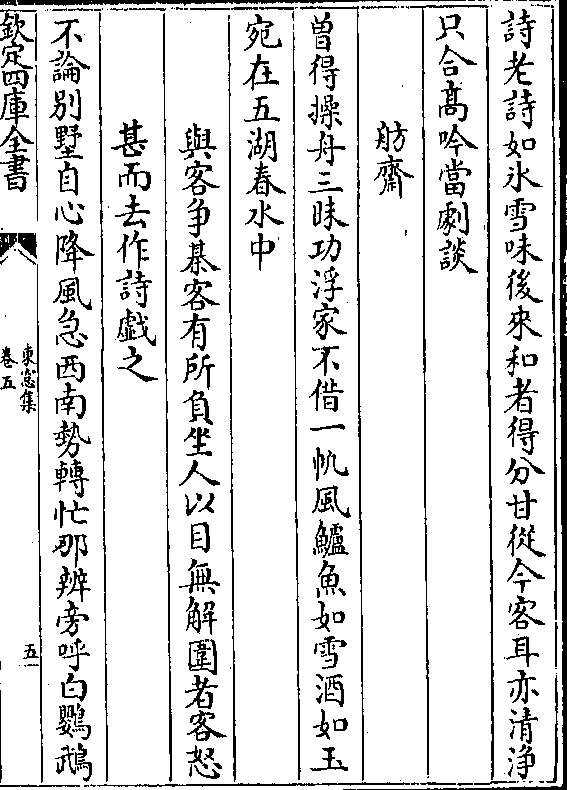 詩老詩如氷雪味後來和者得分甘從今客耳亦清浄
只合髙吟當劇談
舫齋
曽得操舟三昧功浮家不借一帆風鱸魚如雪酒如玉
宛在五湖春水中
與客争棊客有所負坐人以目無解圍者客怒
甚而去作詩戯之
不論别墅自心降風急西南勢轉忙那辨旁呼白鸚鵡
欽定四庫全書
東窓集
卷五
五